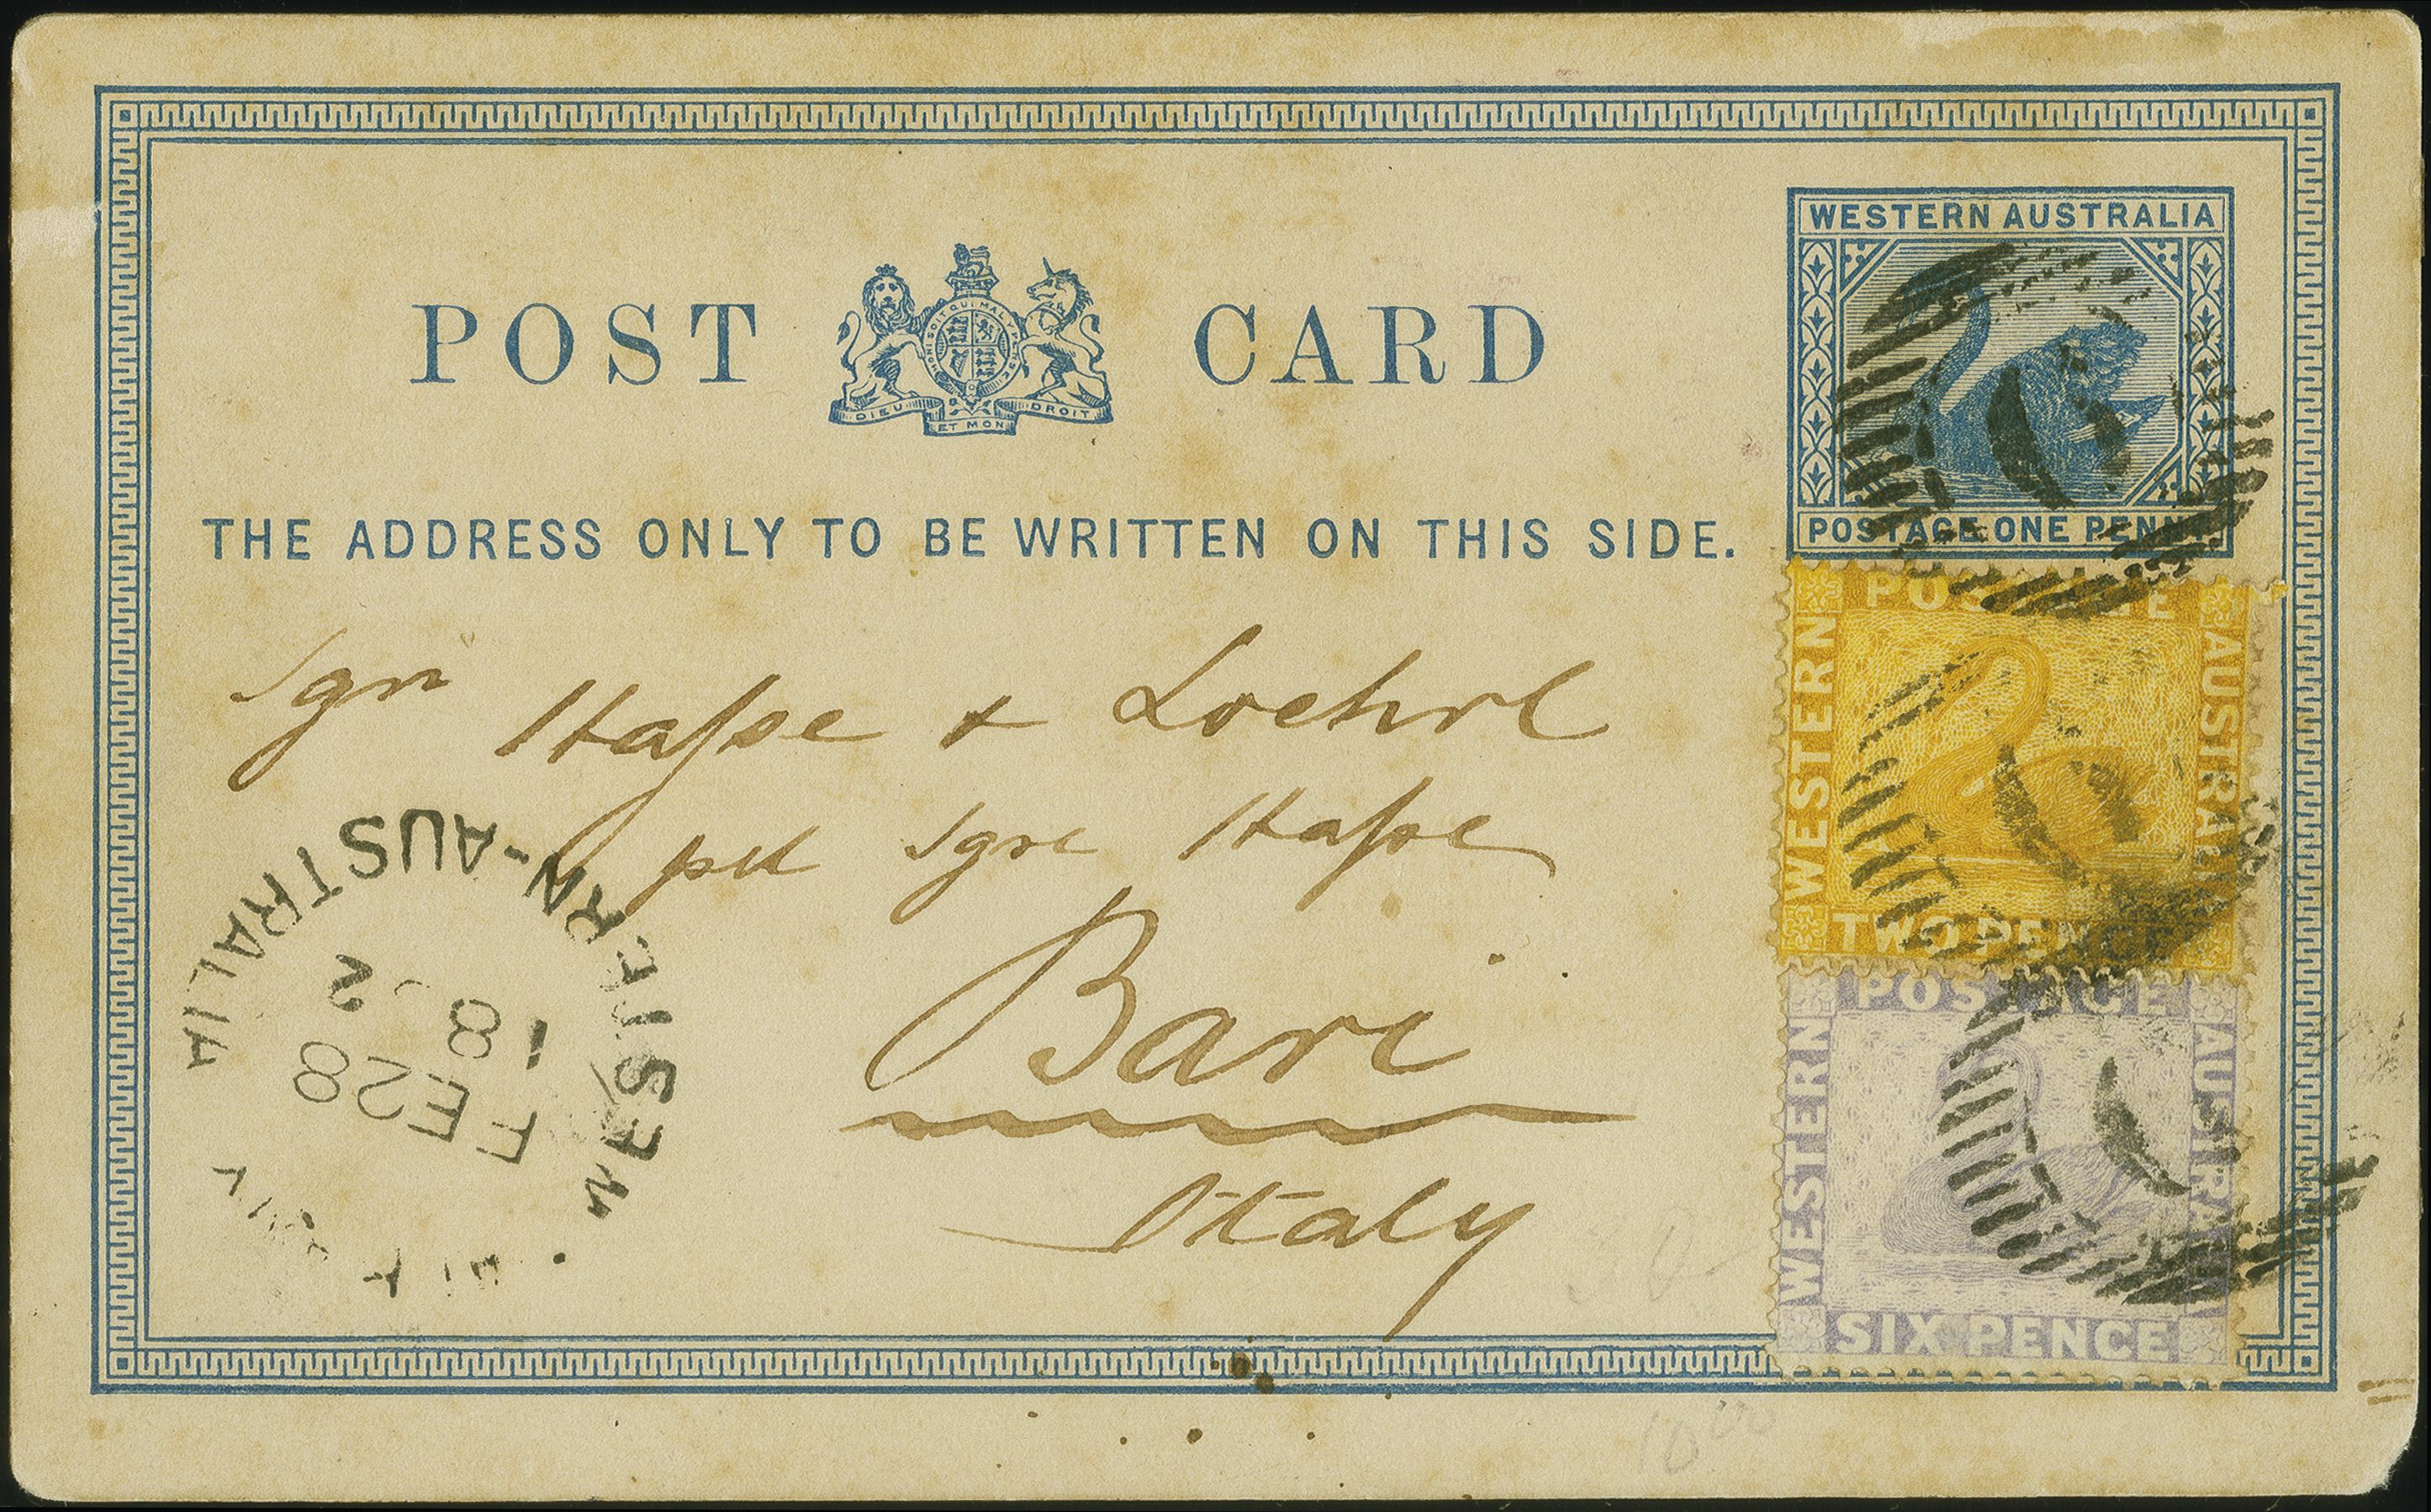 WESTERN AUSTRALIA
POST CARD
HONI SOIT QUI MAL Y PENSE
DIEU ET MON DROIT
POSTAGE ONE PENNY
THE ADDRESS ONLY TO BE WRITTEN ON THIS SIDE.
POSTAGE
WESTERN
AUSTRALIA
TWO PENCE
Sgri Haſse & Loehrl
Sgre Haſse
Bari
Italy
WESTERN-AUSTRALIA
FE 28
8
POSTAGE
WESTERN
AUSTRALIA
SIX PENCE